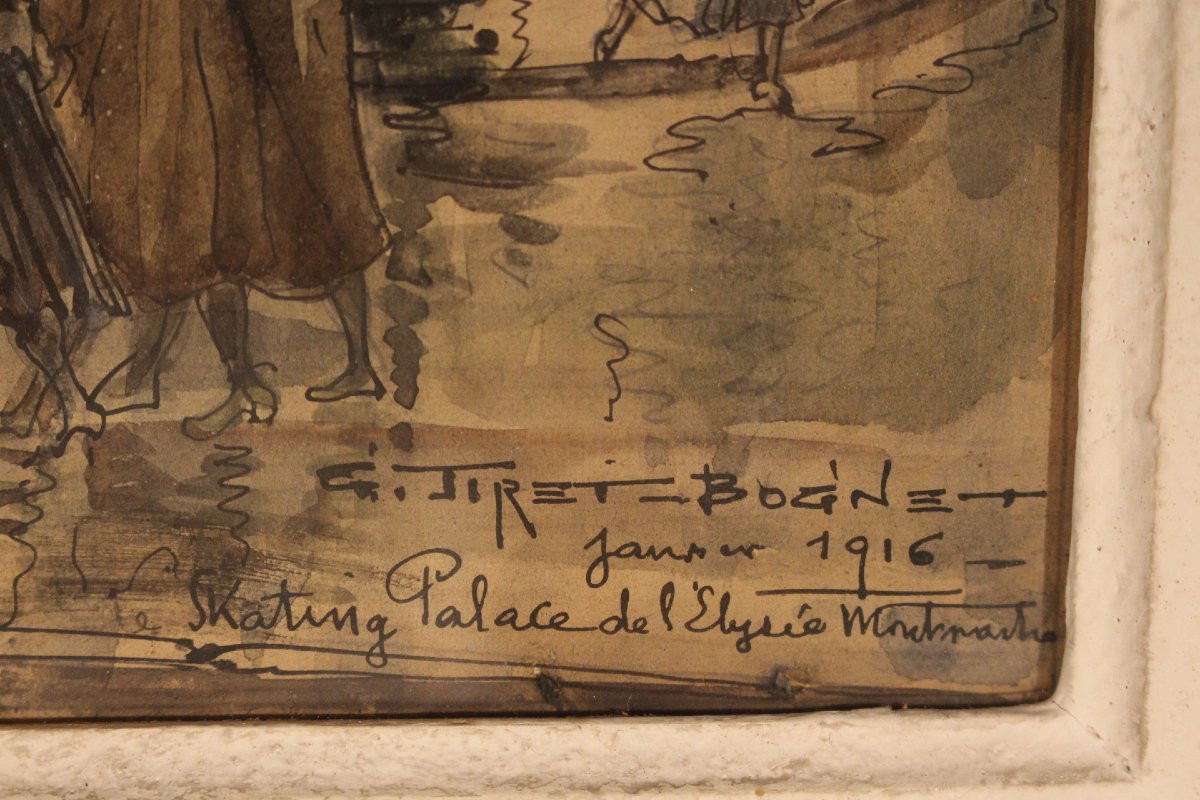 G. TIRET-BOGNET
janvier 1916 —
le Skating Palace de l'Elysée Montmartre